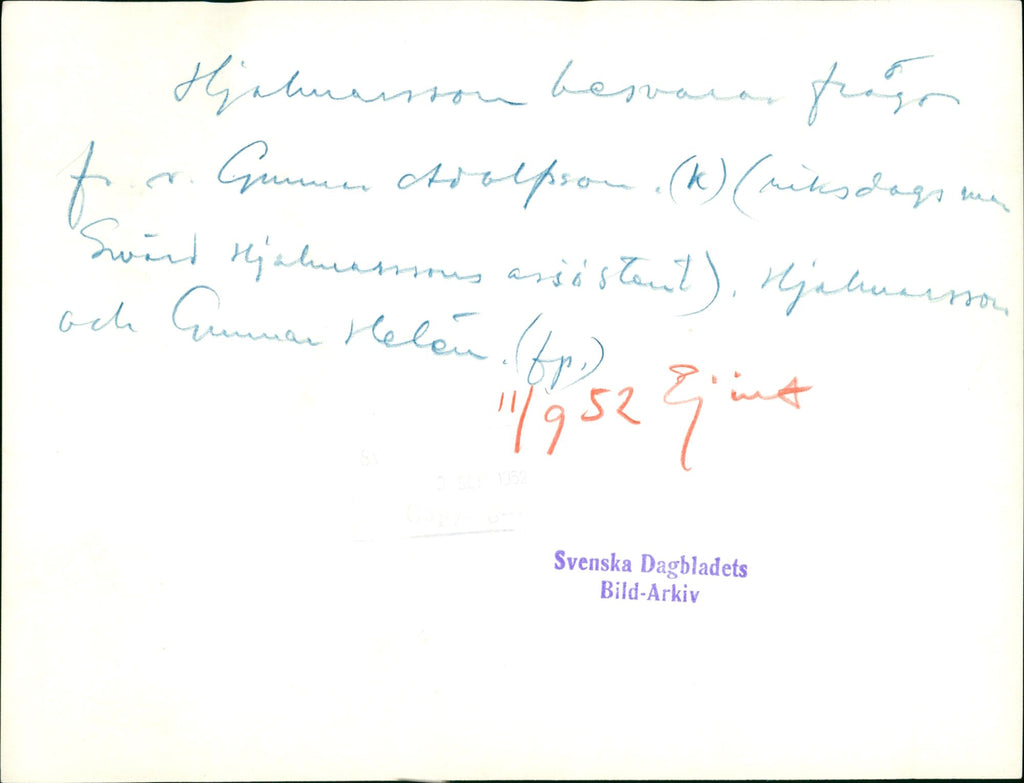 Hjalmarsson besvarar frågor
fr. v. Gunnar Adolfsson. (k) (riksdagsman
Swärd Hjalmarssons assistent). Hjalmarsson
och Gunnar Helén. (fp.)
11/9 52 Ej inf
1952
Svenska Dagbladets
Bild-Arkiv